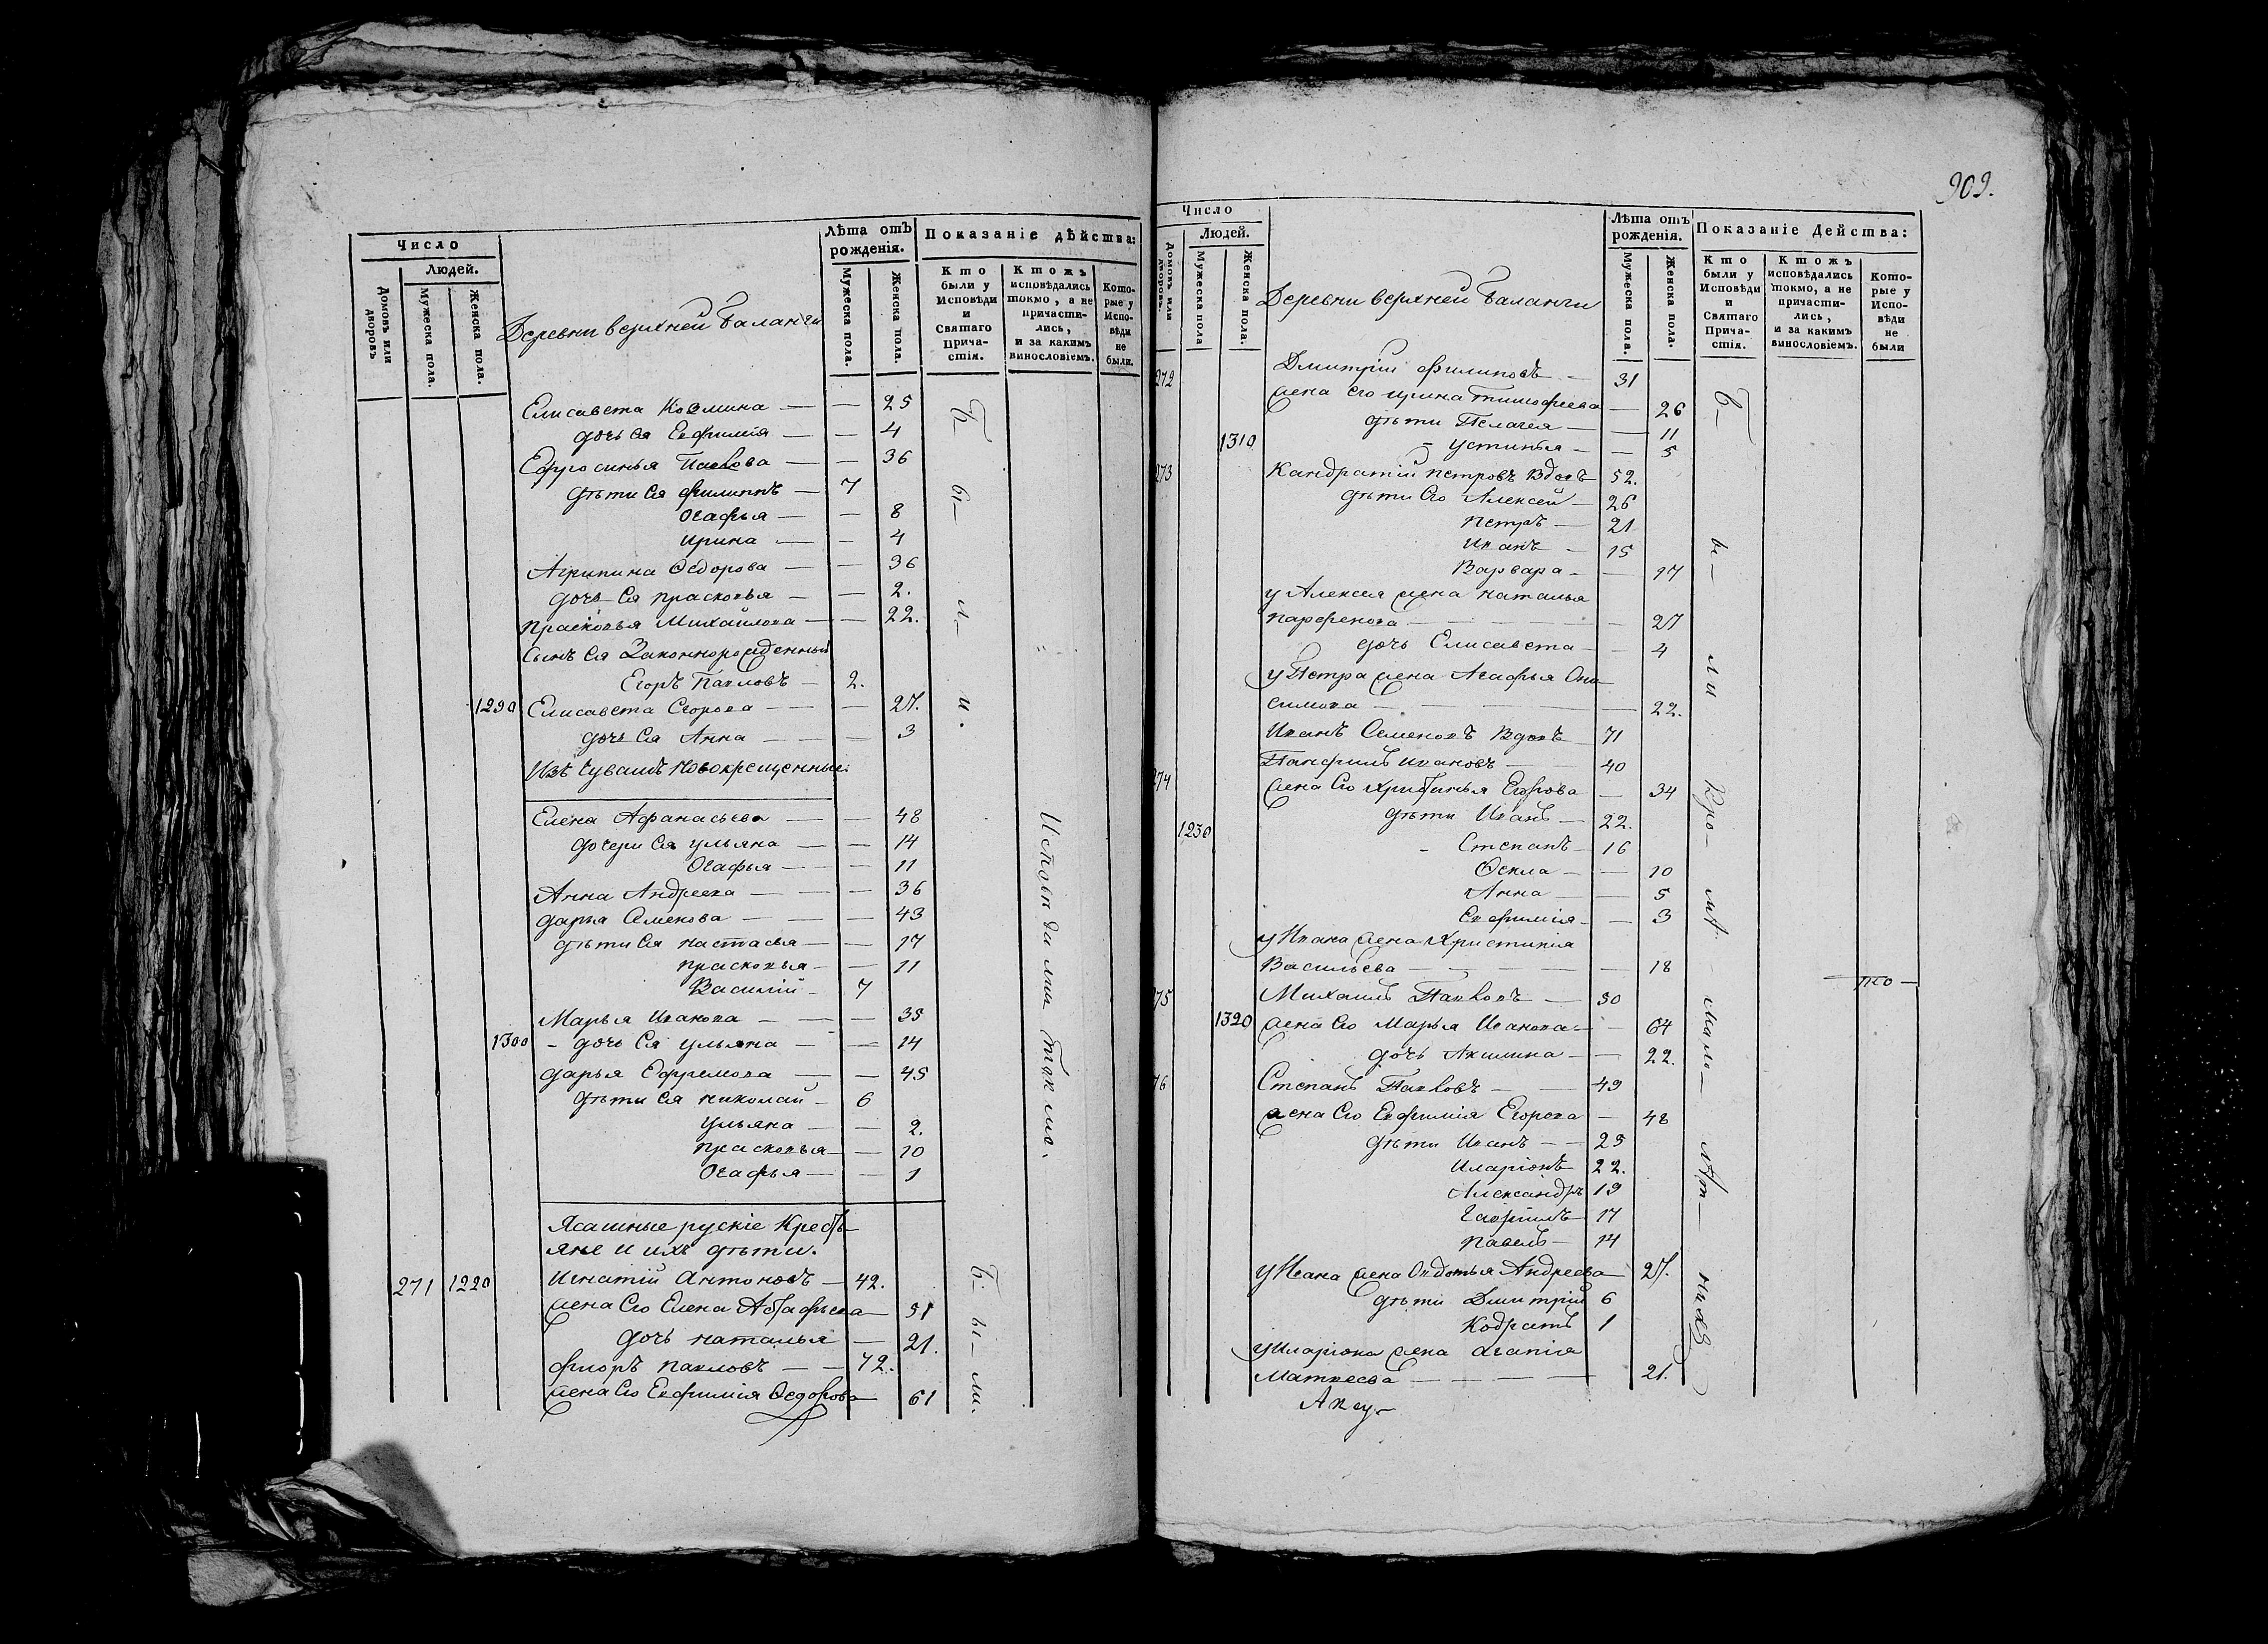 Число
Людей.
Домовъ или дворовъ
Мужеска пола.
Женска пола.
Деревни верхней Баланчи
Лѣта отъ рожденія.
Мужеска пола.
Женска пола.
Показаніе дѣйства:
Кто были у Исповѣди и Святаго Прича-стія.
Ктожъ исповѣдались токмо, а не причасти-лись, и за какимъ винословіемъ.
Кото-рые у Испо-вѣди не были.
Елисавета Козмина — — 25
дочь Ея Евфимія — — 4
Ефросинья Павлова — — 36
дѣти Ея Филиппъ — 7
Огафья — — 8
Ирина — — 4
Агрипина Ѳедорова — — 36
дочь Ея Прасковья — — 2.
Прасковья Михайлова — — 22.
Сынъ Ея Законнорожденный
Егоръ Павловъ — 2.
1290 Елисавета Егорова — — 27.
дочь Ея Анна — — 3
Изъ Чувашъ новокрещенные.
Елена Афанасьева — — 48
дочери Ея Ульяна — — 14
Огафья — — 11
Анна Андреева — — 36
Дарья Семенова — — 43
дѣти Ея Настасья — — 17
Прасковья — — 11
Василій — 7
Марья Иванова — — 35
1300 — дочь Ея Ульяна — — 14
Дарья Ефремова — — 45
дѣти Ея Николай — 6
Ульяна — — 2.
Прасковья — — 10
Огафья — — 1
Ясашные рускіе Кресть-
яне и ихъ дѣти.
271 1220 Игнатій Антоновъ — 42.
жена Его Елена Астафьева — 51
дочь Наталья — 21.
Флоръ Павловъ — — 72.
жена Его Евфимія Ѳедорова — 61
Были.
Исповѣдались токмо.
Были.
909.
Число
Людей.
Домовъ или дворовъ.
Мужеска пола
Женска пола.
Деревни верхней Баланчи
Лѣта отъ рожденія.
Мужеска пола.
Женска пола.
Показаніе Действа:
Кто были у Исповѣди и Святаго Прича-стія.
Ктожъ исповѣдались токмо, а не причасти-лись, и за какимъ винословіемъ.
Кото-рые у Испо-вѣди не были
272 Дмитрій Филиповъ — 31
жена Его Ирина Тимофеева — 26
дѣти Пелагея — — 11
1310 — Устинья — — 5
273 Кандратій Петровъ Вдовъ 52.
дѣти Его Алексей — 26
Петръ — 21
Иванъ — 15
Варвара — — 17
у Алексея жена Наталья
Парфенова — — 27
дочь Елисавета — — 4
у Петра жена Агафья Они
симова — — 22.
Иванъ Семеновъ Вдовъ 71
274 Панфилъ Ивановъ — 40
жена Его Христинья Егорова — 34
1230 дѣти Иванъ — 22.
— Степанъ — 16
Ѳекла — — 10
Анна — — 5
Евфимія — — 3
у Ивана жена Христинія
Васильева — — 18
275 Михаилъ Павловъ — 50
1320 жена Его Марья Иванова — — 64
дочь Акилина — — 22.
276 Степанъ Павловъ — — 49
жена Его Евфимія Егорова — 48
дѣти Иванъ — — 25
Иларіонъ 22.
Александръ 19
Гавріилъ 17
Павелъ — 14
у Ивана жена Овдотья Андреева — 27.
дѣти Дмитрій 6
Кодратъ 1
у Иларіона жена Агапія
Матвеева — — 21.
Аксу-
Были Кро- ма мало- лѣт- нихъ